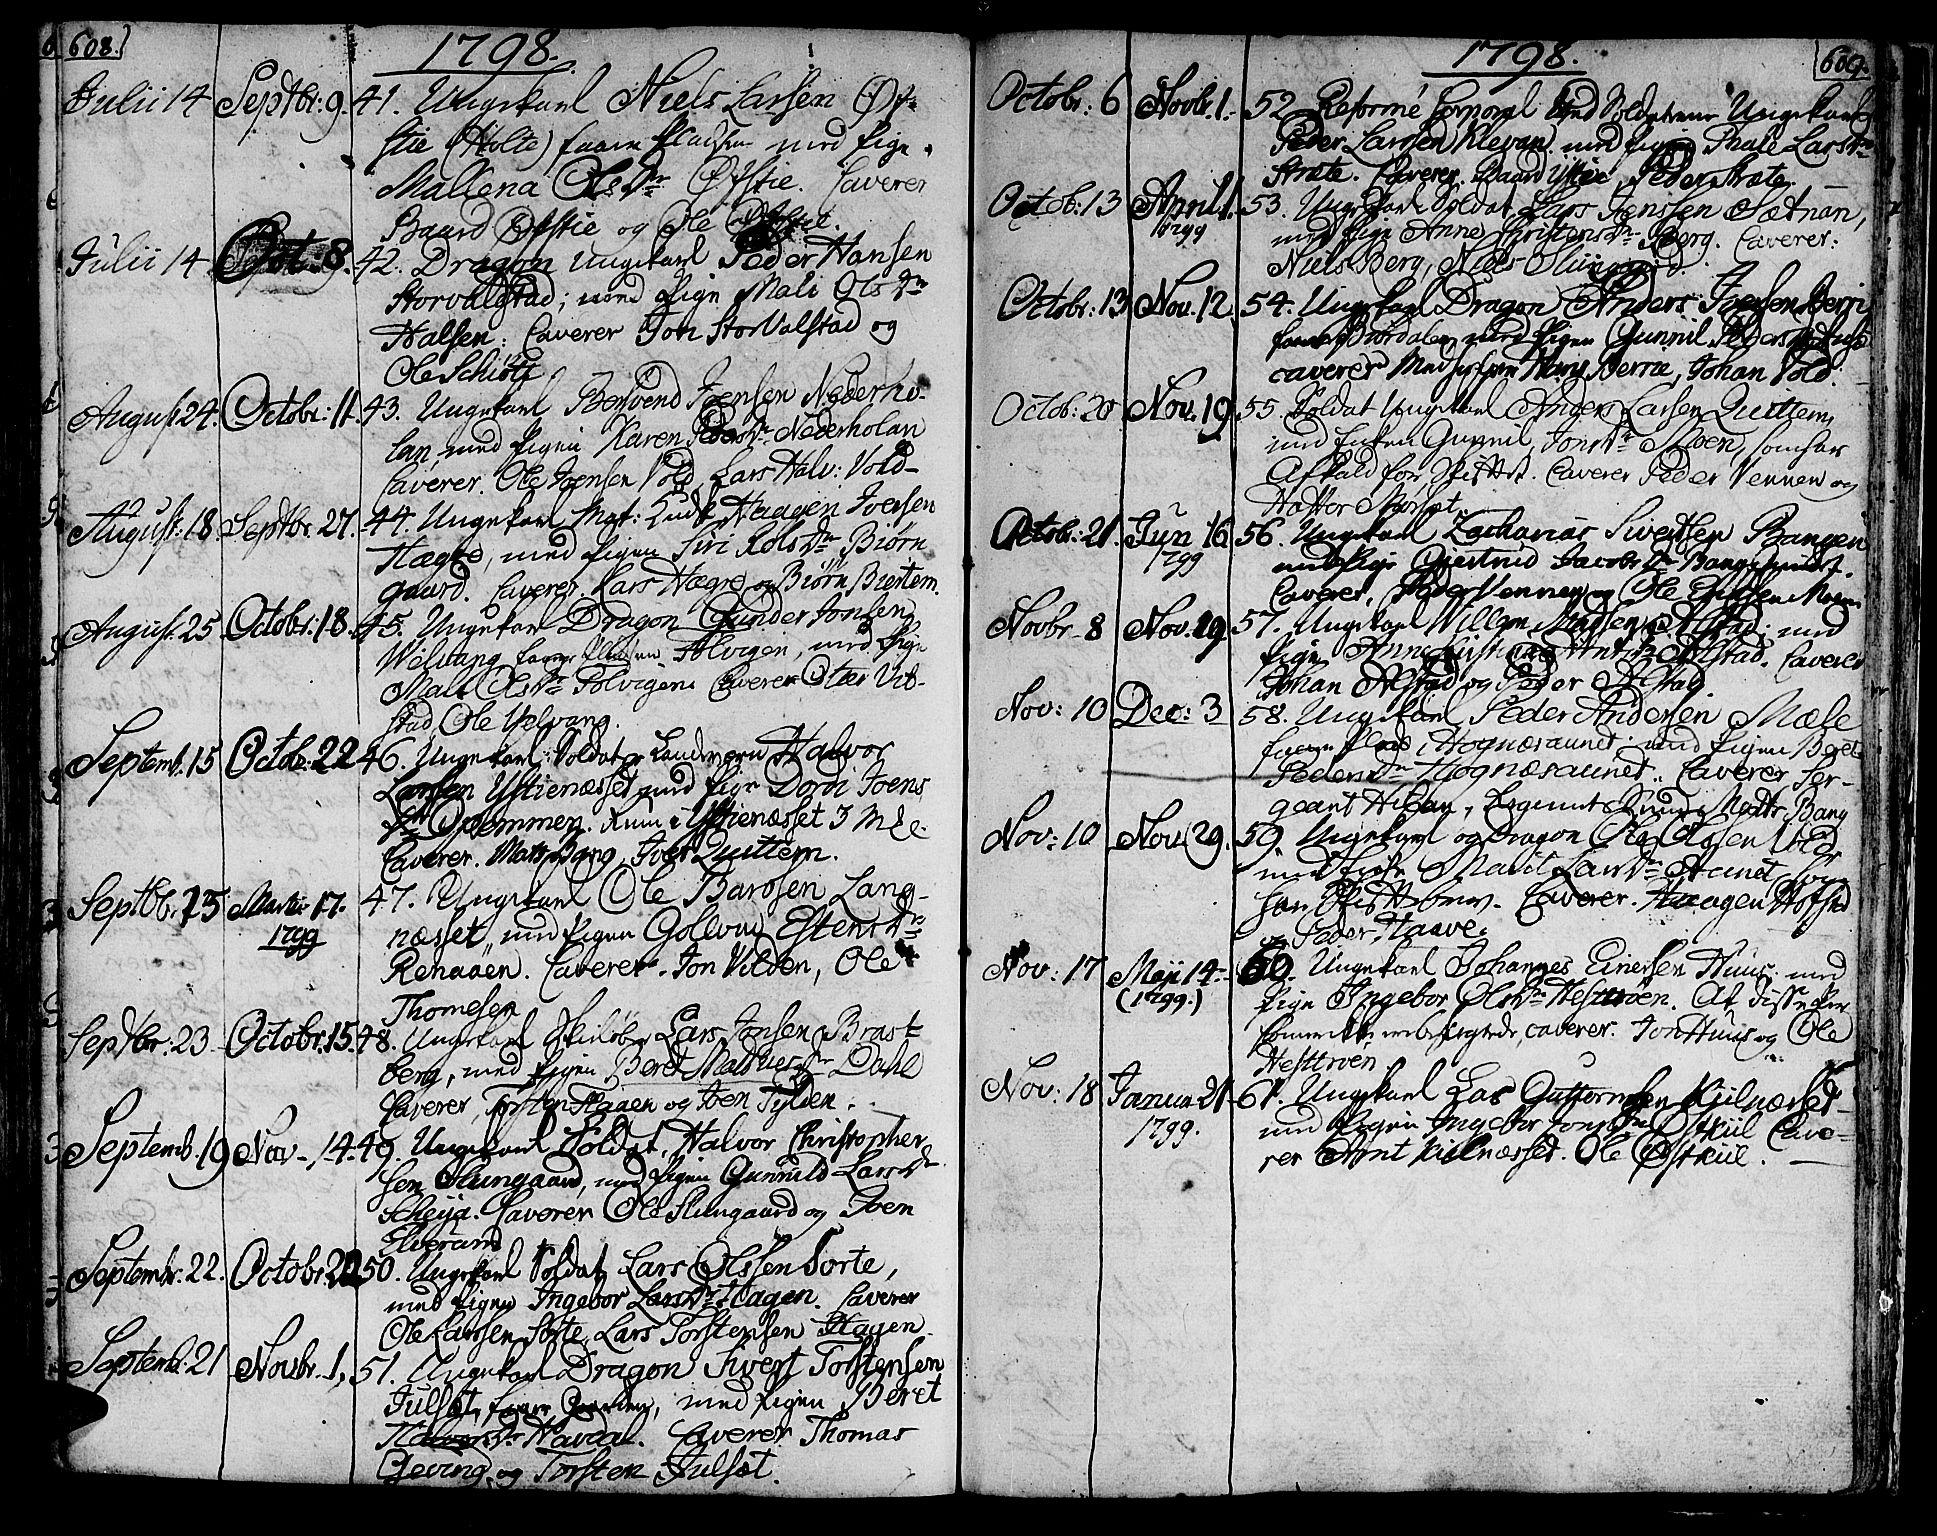 608.
1798.
Julii 14 Septbr: 9. 41. Ungekarl Niels Larsen Øf-
stie (Holte) faaer Pladsen med Pige
Mallena Olsdr Øfstie. Caverer
Baard Øfstie og Ole Øfstie.
Julii 14 Oct: 8. 42. Dragon Ungekarl Peder Hansen
Storvalstad; med Pige Mali Olsdr
Halsen. Caverer Jon StorValstad og
Ole Schiøtt
August 24. Octobr: 11. 43. Ungekarl Joensen Nederho-
lan, med Pigen Karen Pedersdr Nederholan
Caverer. Ole Joensen Vold, Lars Halv: Vold
August: 18 Septbr. 27. 44. Ungekarl Haagen Joensen
Hægre, med Pigen Siri Rolsdr Biørn
gaard. Caverer. Lars Hægre og Biørn Biertem.
August: 25 Octobr: 18. 45. Ungekarl Dragon Gunder Jonsen
Welvang faaer Pladsen Solvigen, med Pige
Mali Olsdr Solvigen. Caverer Otter Vol-
stad, Ole Velvang.
Septemb. 15 Octobr. 22 46. Ungekarl, Soldat Landværn Halvor
Larsen Ystienæsset med Pige Dordi Joens
dr Opemmen. Rum i Ystienæsset 3 Mle.
Caverer. Mats Bang, Iver Quittem.
Septbr. 15 Martii 17. 1799 47. Ungekarl Ole Barosen Lang-
næsset, med Pigen Gollvey Estensdr
Renaaen. Caverer. Jon Vilden, Ole
Thomesen
Septbr: 23 Octobr. 15. 48. Ungekarl Skiløber Lars Jonsen Brast-
berg, med Pigen Beret Mathiesdr Dahl
Caverer, Torsten Haaen og Joen Fylden.
Septemb. 19 Nov - 14. 49. Ungekarl Soldat, Halvor Christopher-
sen Slungaard, med Pigen Gunnild Larsdr
Scheija. Caverer Ole Slungaard og Joen
Elverand
Septembr: 22. Octobr. 22 50. Ungekarl Soldat Lars Olssen Sorte,
med Pigen Ingebor Larsdr Hagen. Caverer
Ole Larsen Sorte, Lars Torstensen Hagen.
Septemb: 21 Novbr. 1, 51. Ungekarl Dragon Sivert Torstensen
Julset, faaer Gaarden, med Pigen Beret
Halvorsdr Havdal. Caverer Thomas
Geving og Torsten Julset.
609.
1798.
Octobr: 6 Novbr. 1. 52. Reformé Corporal Ungekarl
Peder Larssen Klevan med Pigen Larsdr
Stræte. Caverer. Baard Ystie, Peder Stræte.
Octob: 13 April 1. 1799 53. Ungekarl Soldat Lars Jenssen Sætnan,
med Pige Anne Christensdr Berg. Caverer:
Niels Berg, Niels Slungaard.
Octobr: 13 Nov. 12 54. Ungekarl Dragon Anders Joensen Berri
faaer Biørdalen med Pigen Gunnil Pedersdr
caverer Hans Berrie, Johan Vold.
Octob: 20 Nov. 19 55. Soldat Ungekarl Anders Larsen Quittem,
med Enken Gunnil Jonsdr Moen, som har
Afkald for Skiftet. Caverer Peder Vennen og
Marset.
Octobr. 21. Jun 16 1799 56. Ungekarl Zacharias Sivertsen Bangen
med Pige Giertrud Jacobsdr
Caverer, Peder Vennen og Ole Moen
Novbr. 8 Nov. 29 57. Ungekarl Willem Alstad; med
Pige Anne Alstad. Caverer
Johan Alstad og Peder Alstad
Nov: 10 Dec: 3 58. Ungekarl Peder Andersen Mæle
faaer Plads i Hognæsaunet, med Pigen Beret
Pedersdr Hognæsaunet. Caverer Ser-
geant Bang
Nov: 10 Nov. 29. 59. Ungekarl og Dragon Ole Olssen Vold
med Enke Marit Larsdr Aunet, som
har Skifte Caverer. Haagen
og Peder Haave.
Nov: 17 Maji 14. (1799.) 60. Ungekarl Johannes Einersen Huus. med
Pige Ingebor Olsdr Hestrøen. Af
caverer. Jon Huus og Ole
Hestrøen
Nov: 18 Januar. 21 1799. 61. Ungekarl Lars Guttormsen Kiilnæsset
med Pigen Ingebor Jonsdr Østkiil Cave-
rer Arnt Kiilnæsset. Ole Østkiil.